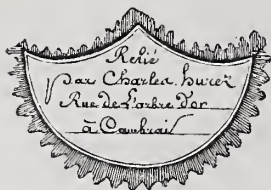 Relié
par Charles hurez
Rue de L'arbre D'or
à Cambrai